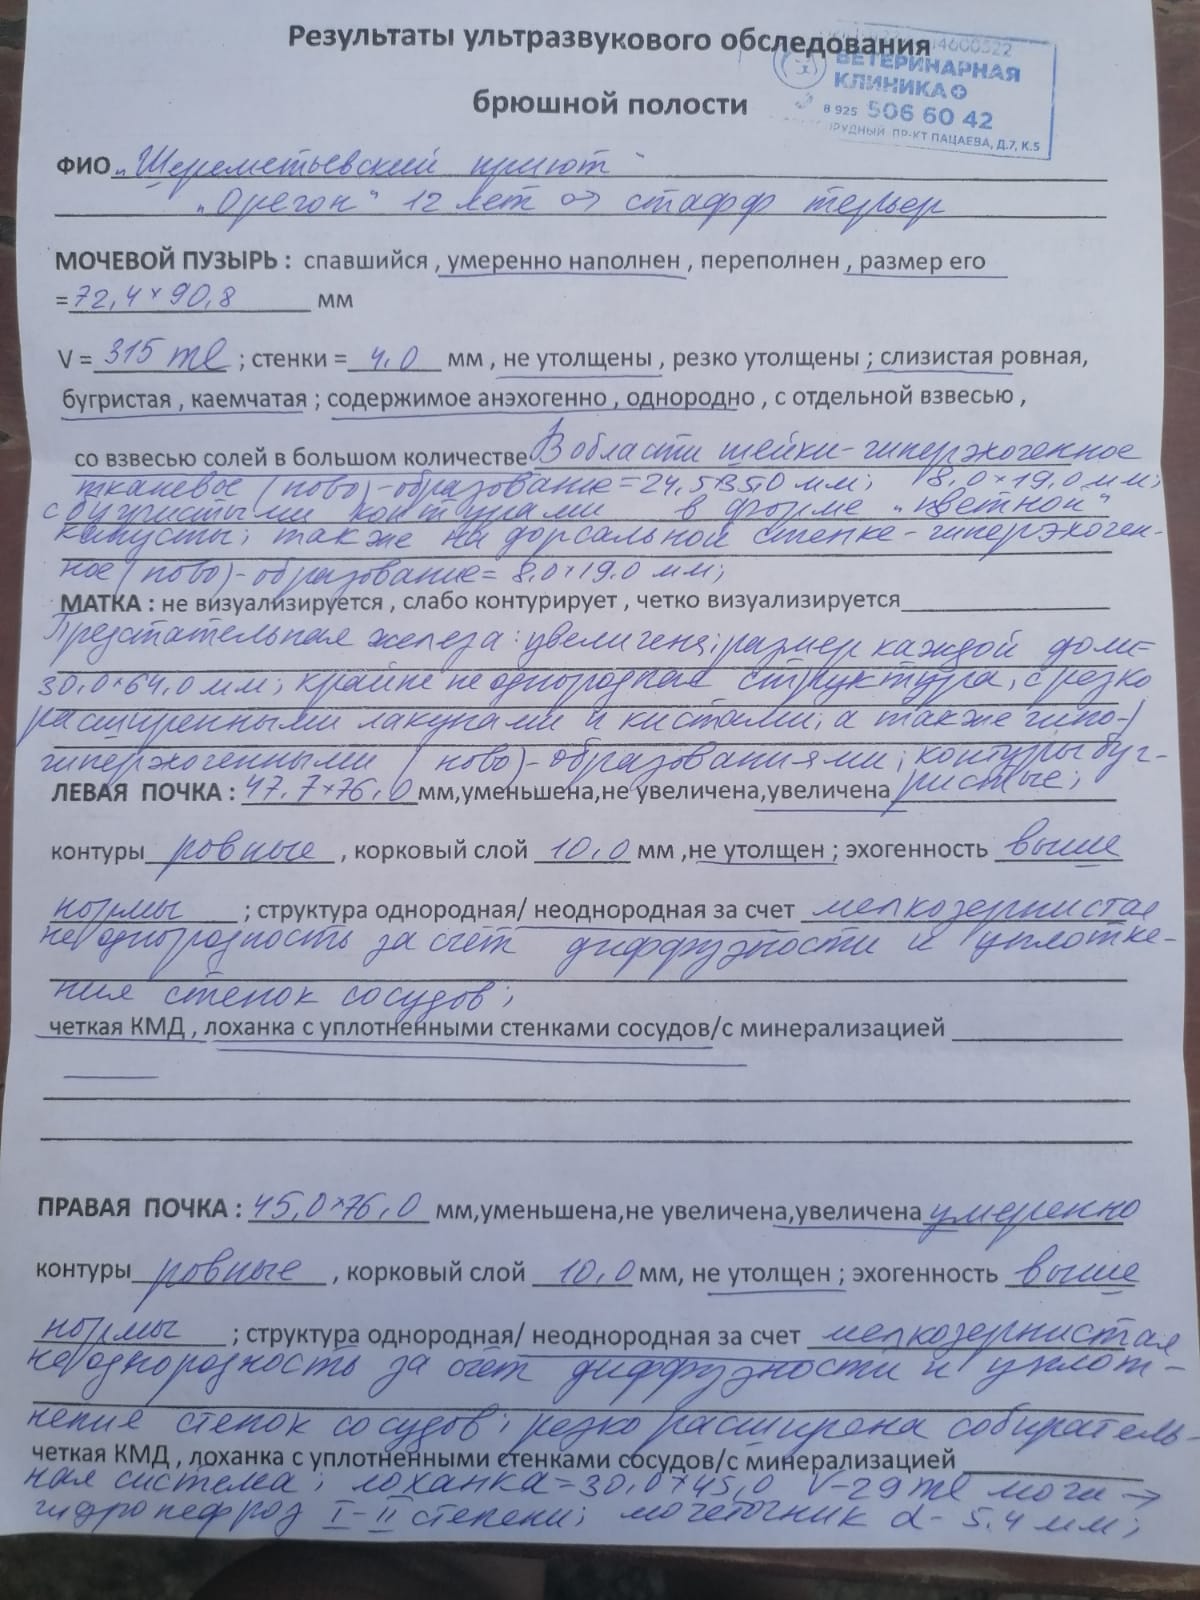 Результаты ультразвукового обследования
брюшной полости
ВЕТЕРИНАРНАЯ
КЛИНИКА
8 925 506 60 42
ПР-КТ ПАЦАЕВА, Д.7, К.5
ФИО „Шереметьевский приют"
„Орегон" 12 лет стафф терьер
МОЧЕВОЙ ПУЗЫРЬ : спавшийся , умеренно наполнен , переполнен , размер его
= 72,4×90,8 мм
V = 315 ml ; стенки = 4.0 мм , не утолщены , резко утолщены ; слизистая ровная,
бугристая , каемчатая ; содержимое анэхогенно , однородно , с отдельной взвесью ,
со взвесью солей в большом количестве В области шейки-гиперэхогенное
тканевое (ново)-образование = 24,5×35,0 мм; 18,0×19,0 мм;
с бугристыми контурами в форме „цветной"
капусты; также на дорсальной стенке-гиперэхоген-
ное (ново)-образование = 8.0×19.0 мм;
МАТКА : не визуализируется , слабо контурирует , четко визуализируется
Предстательная железа: увеличена; размер каждой доли-
30,0×64,0 мм; крайне неоднородная структура, с резко
расширенными лакунами и кистами, а также гипо-/
гиперэхогенными (ново)-образованиями; контуры буг-
ЛЕВАЯ ПОЧКА : 47.7×76,0 мм,уменьшена,не увеличена,увеличена ристые;
контуры ровные , корковый слой 10,0 мм ,не утолщен ; эхогенность выше
нормы ; структура однородная/ неоднородная за счет мелкозернистая
неоднородность за счёт диффузности и уплотне-
ния стенок сосудов;
четкая КМД , лоханка с уплотненными стенками сосудов/с минерализацией
ПРАВАЯ ПОЧКА : 45,0×76,0 мм,уменьшена,не увеличена,увеличена умеренно
контуры ровные , корковый слой 10,0 мм, не утолщен ; эхогенность выше
нормы ; структура однородная/ неоднородная за счет мелкозернистая
неоднородность за счёт диффузности и уплот-
нение стенок сосудов; резко расширена собиратель-
четкая КМД , лоханка с уплотненными стенками сосудов/с минерализацией
ная система; лоханка = 30,0×45,0 V-29 ml мочи →
гидронефроз I-II степени; мочеточник d- 5.4 мм;